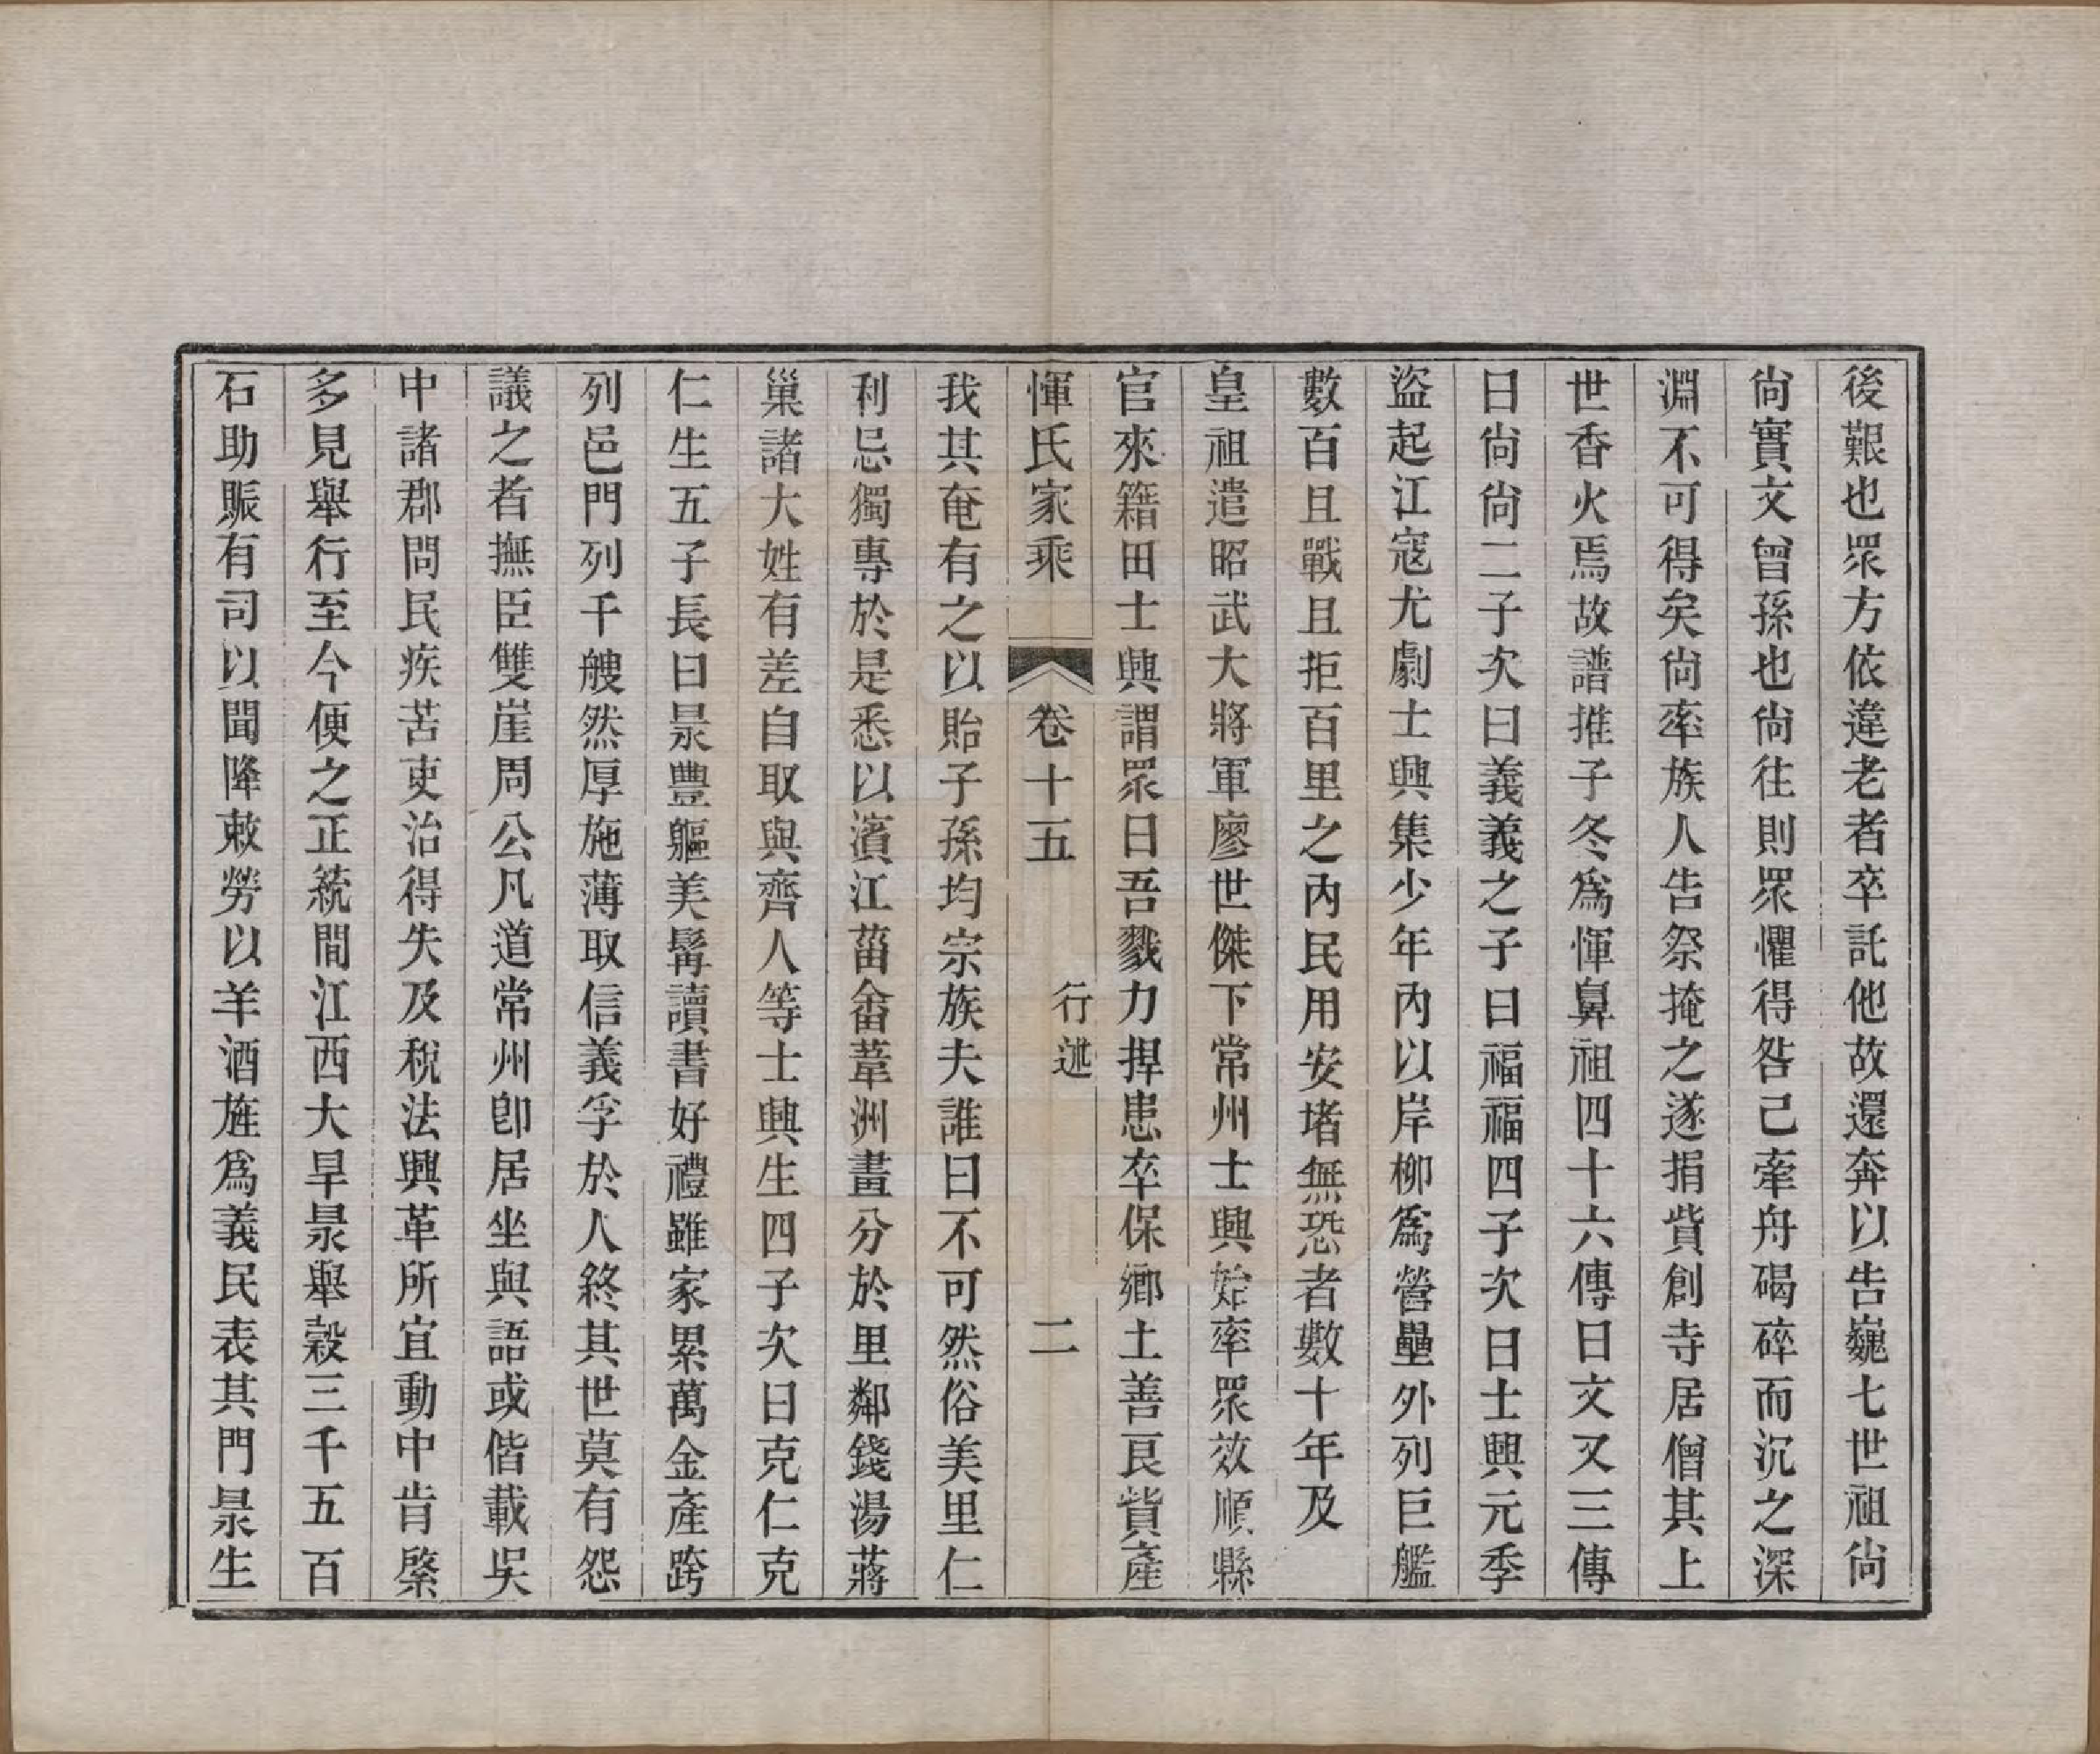 後艱也眾方依違老者卒託他故還奔以告巍七世祖尙
尙實文曾孫也尙往則眾懼得咎己牽舟碣碎而沉之深
淵不可得矣尙率族人告祭掩之遂捐貲創寺居僧其上
世香火焉故譜推子冬爲惲鼻祖四十六傳曰文又三傳
曰尙尙二子次曰義義之子曰福福四子次曰士興元季
盜起江寇尤劇士興集少年內以岸柳爲營壘外列巨艦
數百且戰且拒百里之內民用安堵無恐者數十年及
皇祖遣昭武大將軍廖世傑下常州士興始率眾效順縣
官來籍田士興謂眾曰吾戮力捍患卒保鄉土善良貲產
惲氏家乘 卷十五 行述 二
我其奄有之以貽子孫均宗族夫誰曰不可然俗美里仁
利忌獨專於是悉以濱江菑畬葦洲畫分於里鄰錢湯蔣
巢諸大姓有差自取與齊人等士興生四子次曰克仁克
仁生五子長曰杲豐軀美髯讀書好禮雖家累萬金產跨
列邑門列千艘然厚施薄取信義孚於人終其世莫有怨
議之者撫臣雙崖周公凡道常州卽居坐與語或偕載吳
中諸郡問民疾苦吏治得失及稅法興革所宜動中肯綮
多見舉行至今便之正統間江西大旱杲舉穀三千五百
石助賑有司以聞降敕勞以羊酒旌爲義民表其門杲生